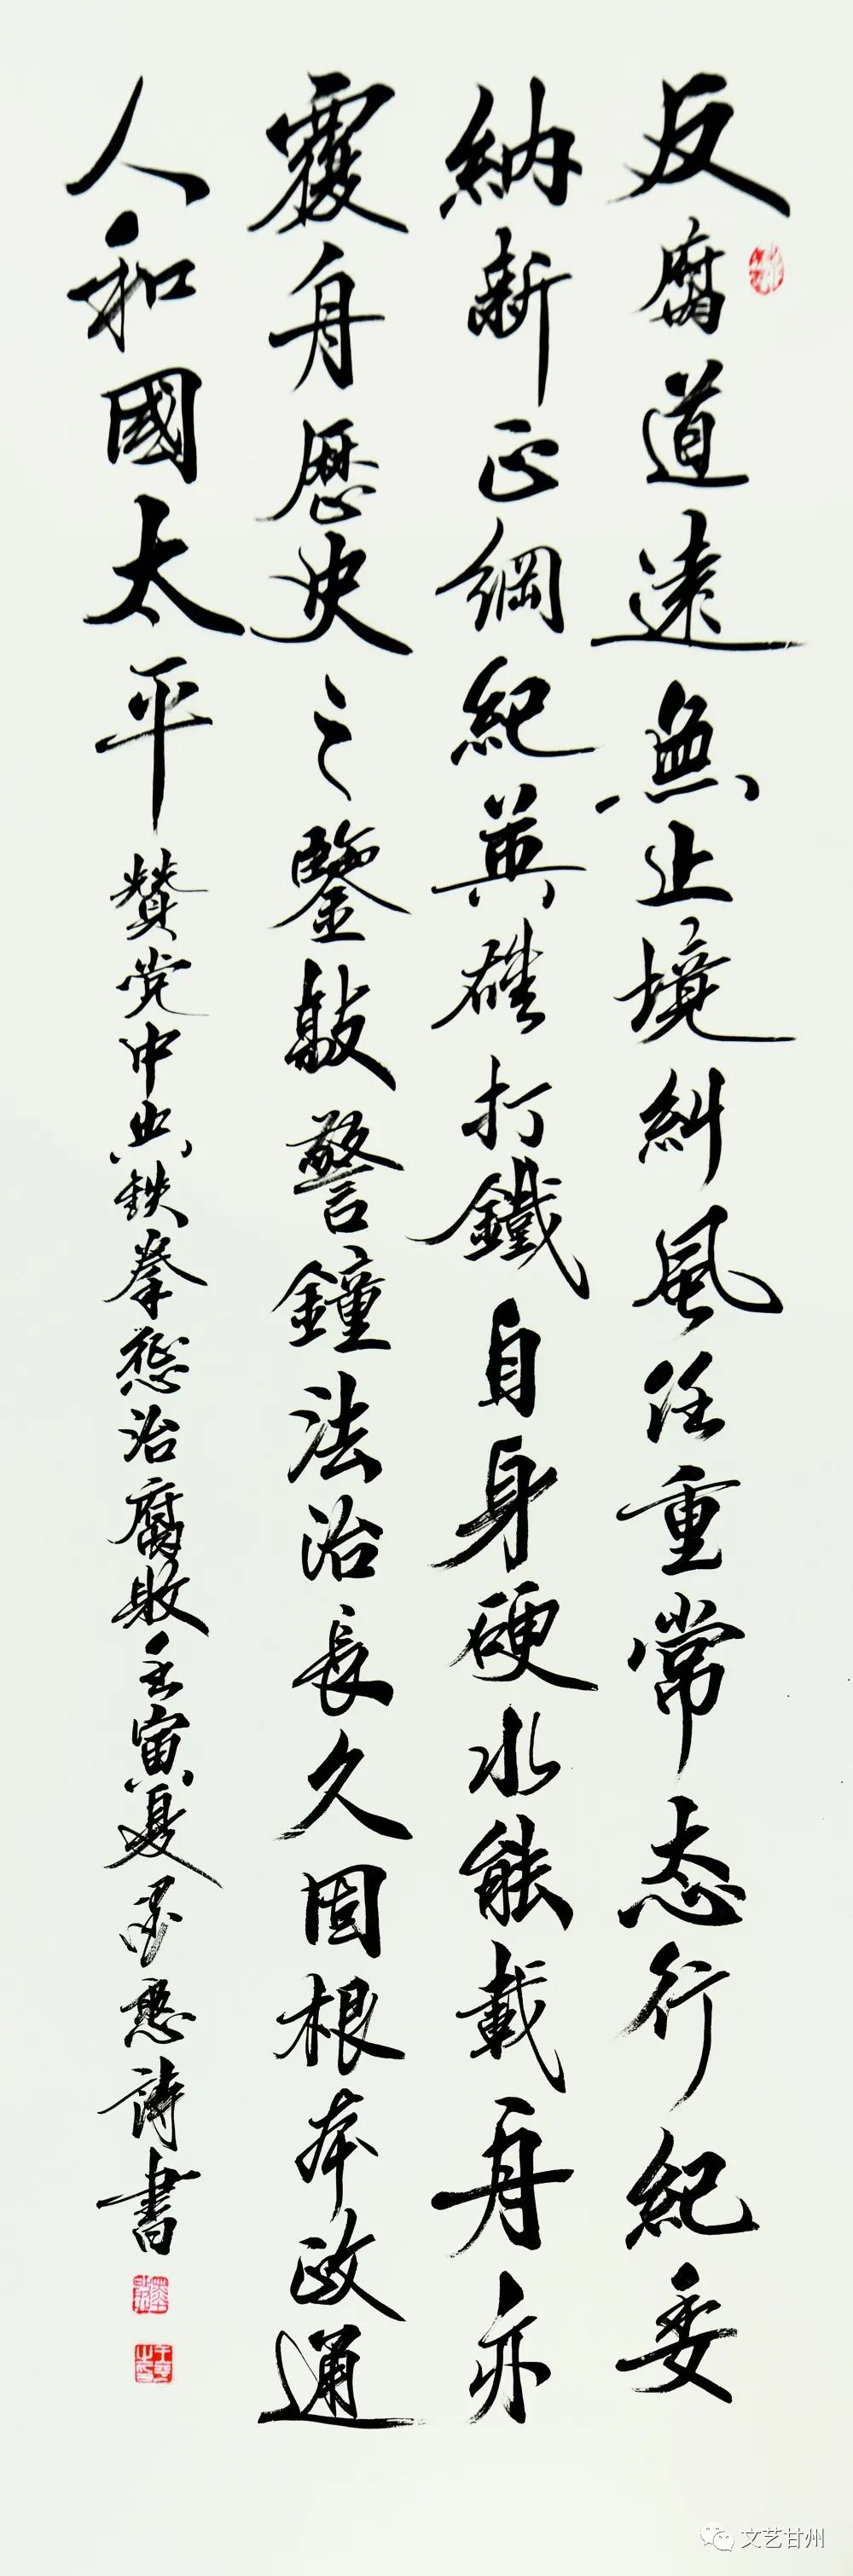 反腐道遠無止境糾風任重常态行紀委
納新正綱紀英雄打鐵自身硬水能載舟亦
覆舟歷史之鑒敲警鐘法治長久固根本政通
人和國太平 贊党中央鉄拳惩治腐敗壬寅夏墨憨詩書
文艺甘州